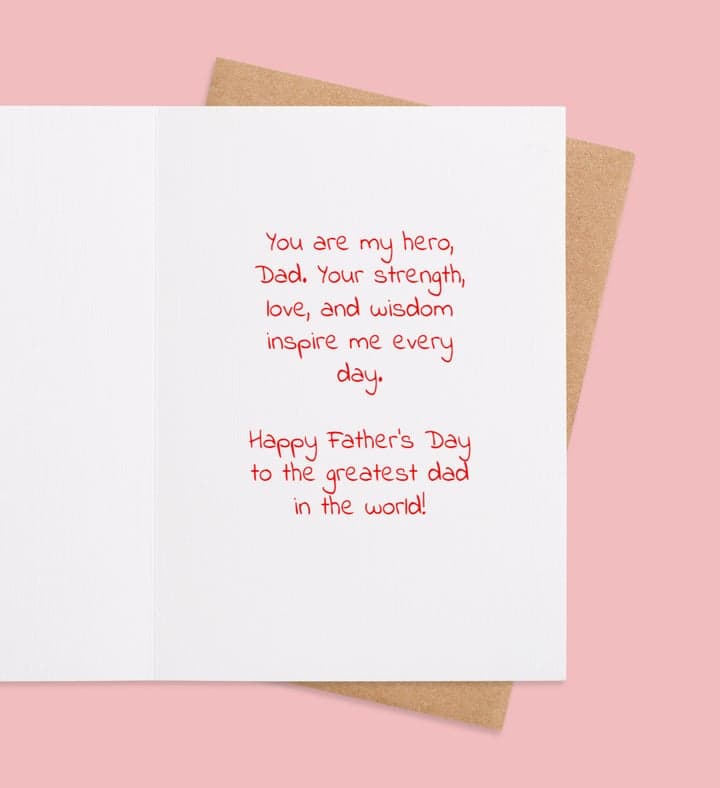 You are my hero,
Dad. Your strength,
love, and wisdom
inspire me every
day.
Happy Father's Day
to the greatest dad
in the world!